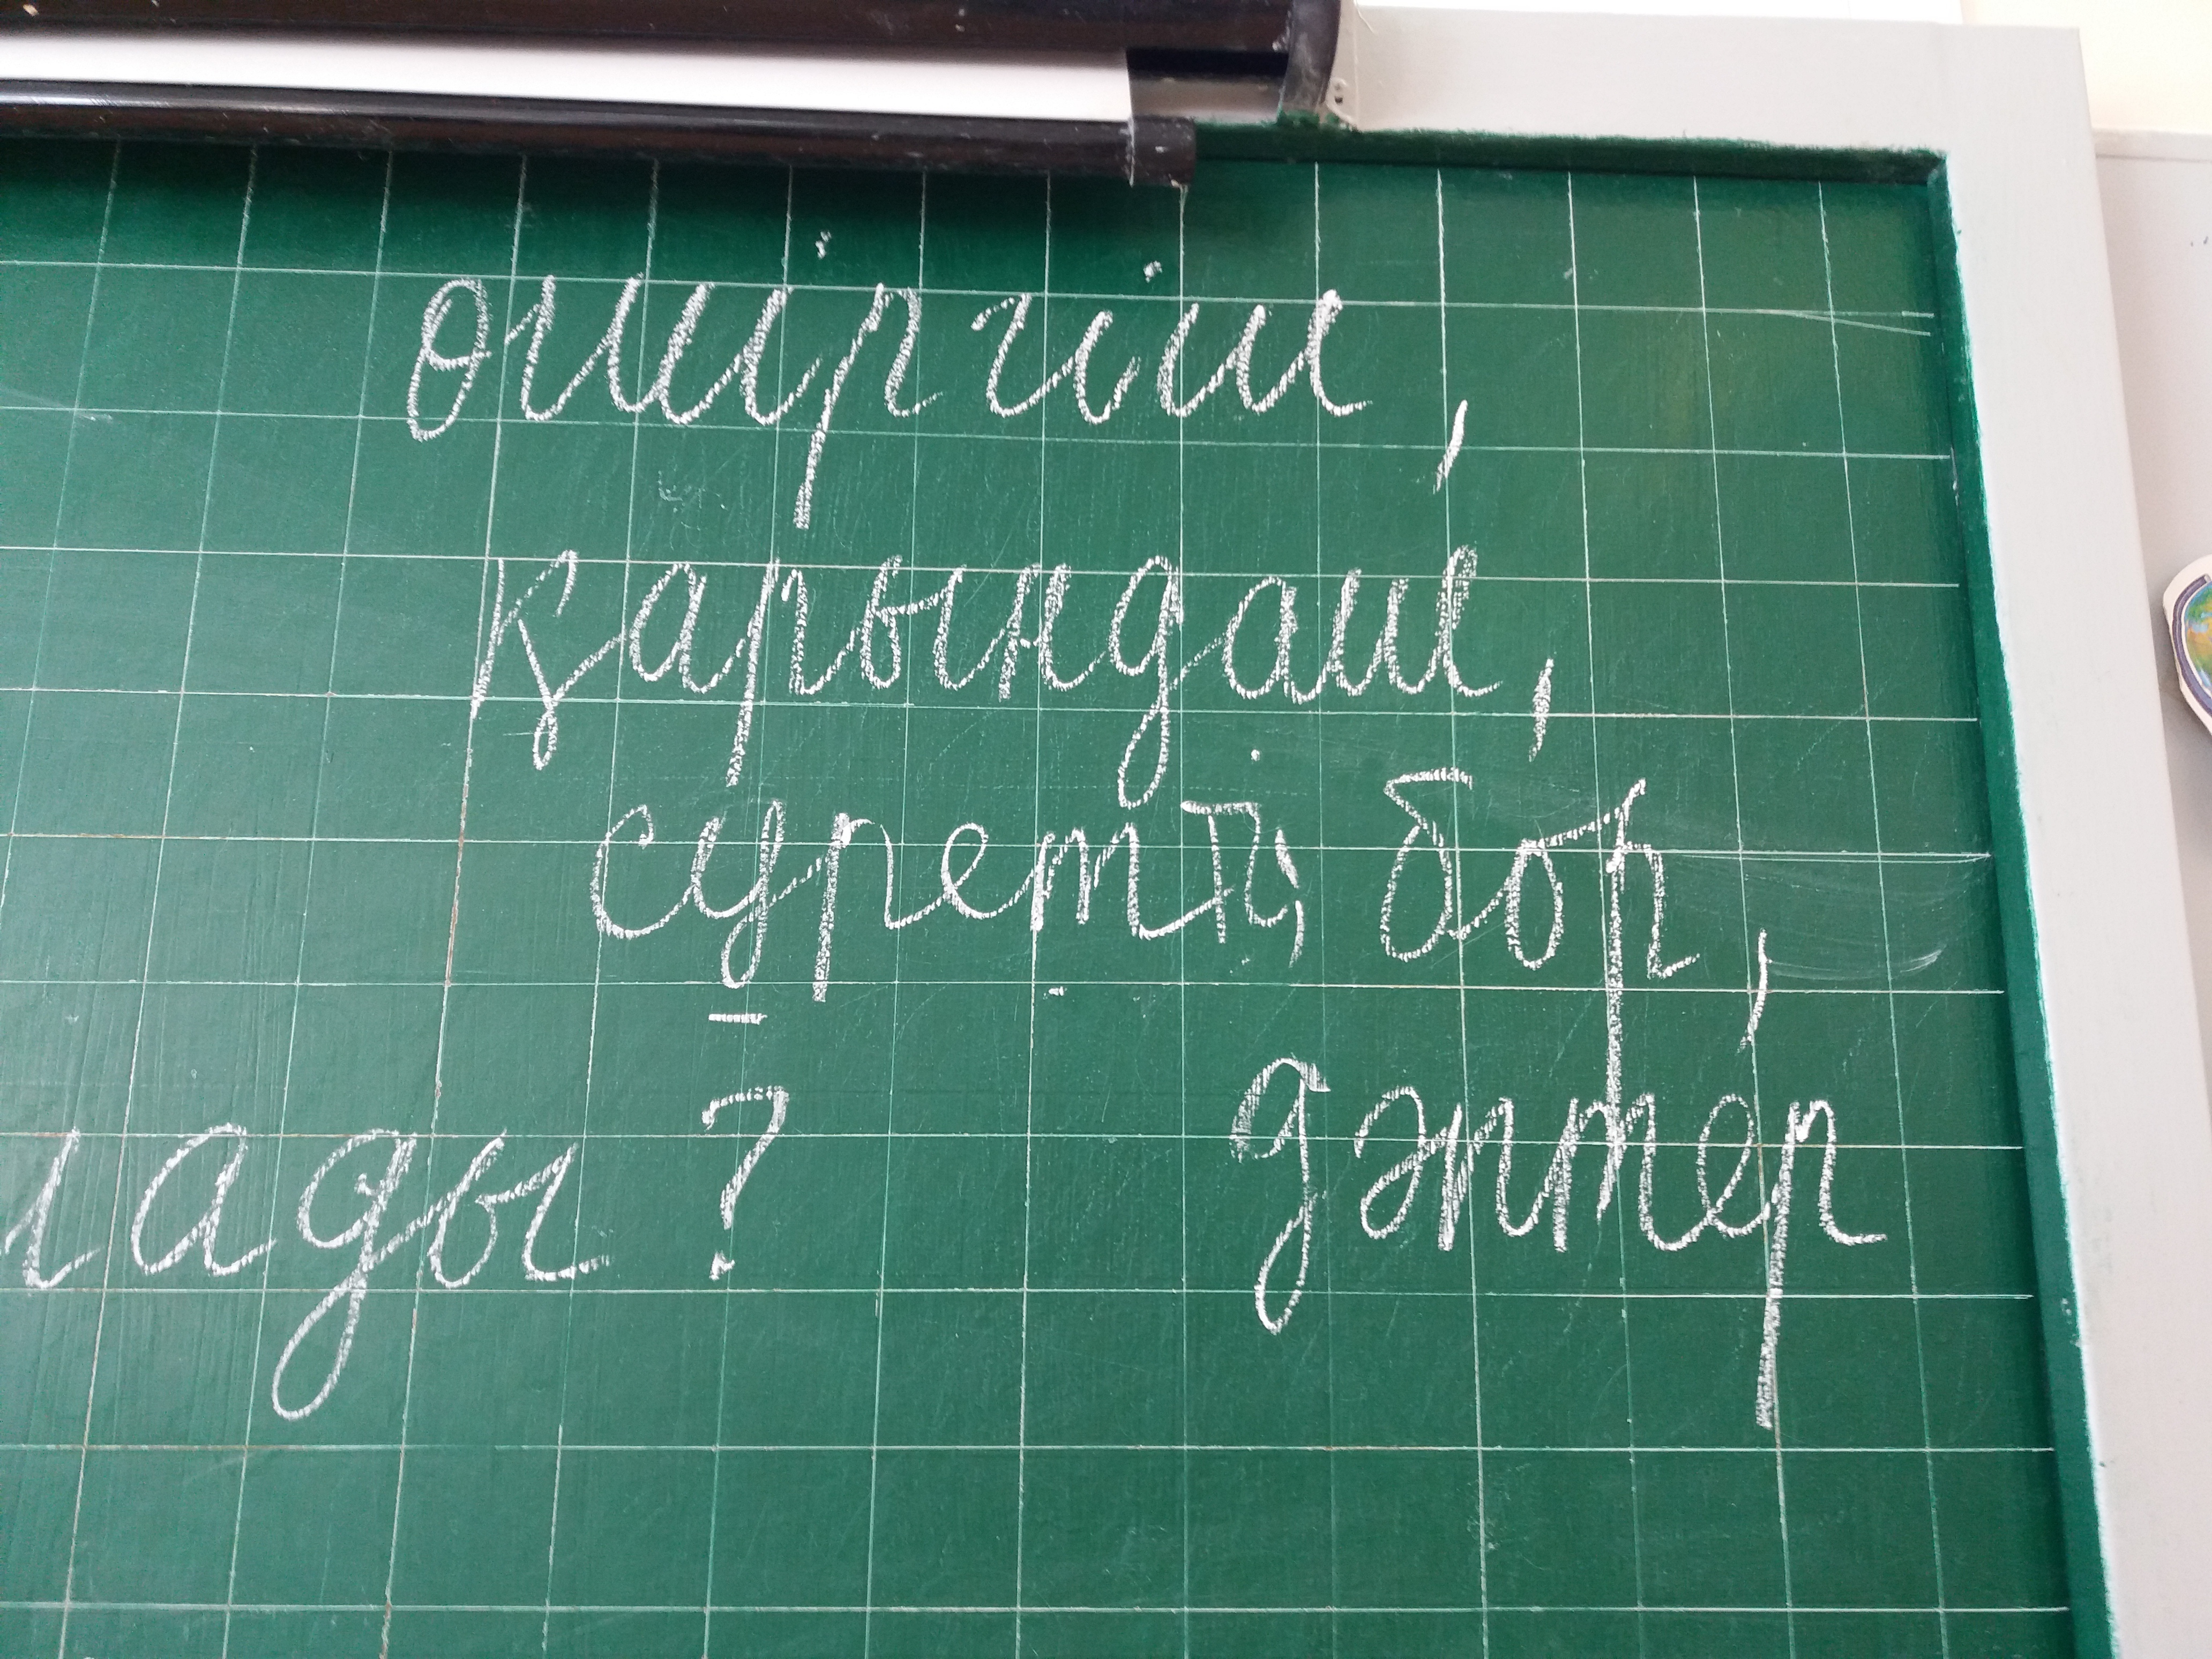 өшіргіш,
қарындаш,
суретті, бор,
лады? дәптер